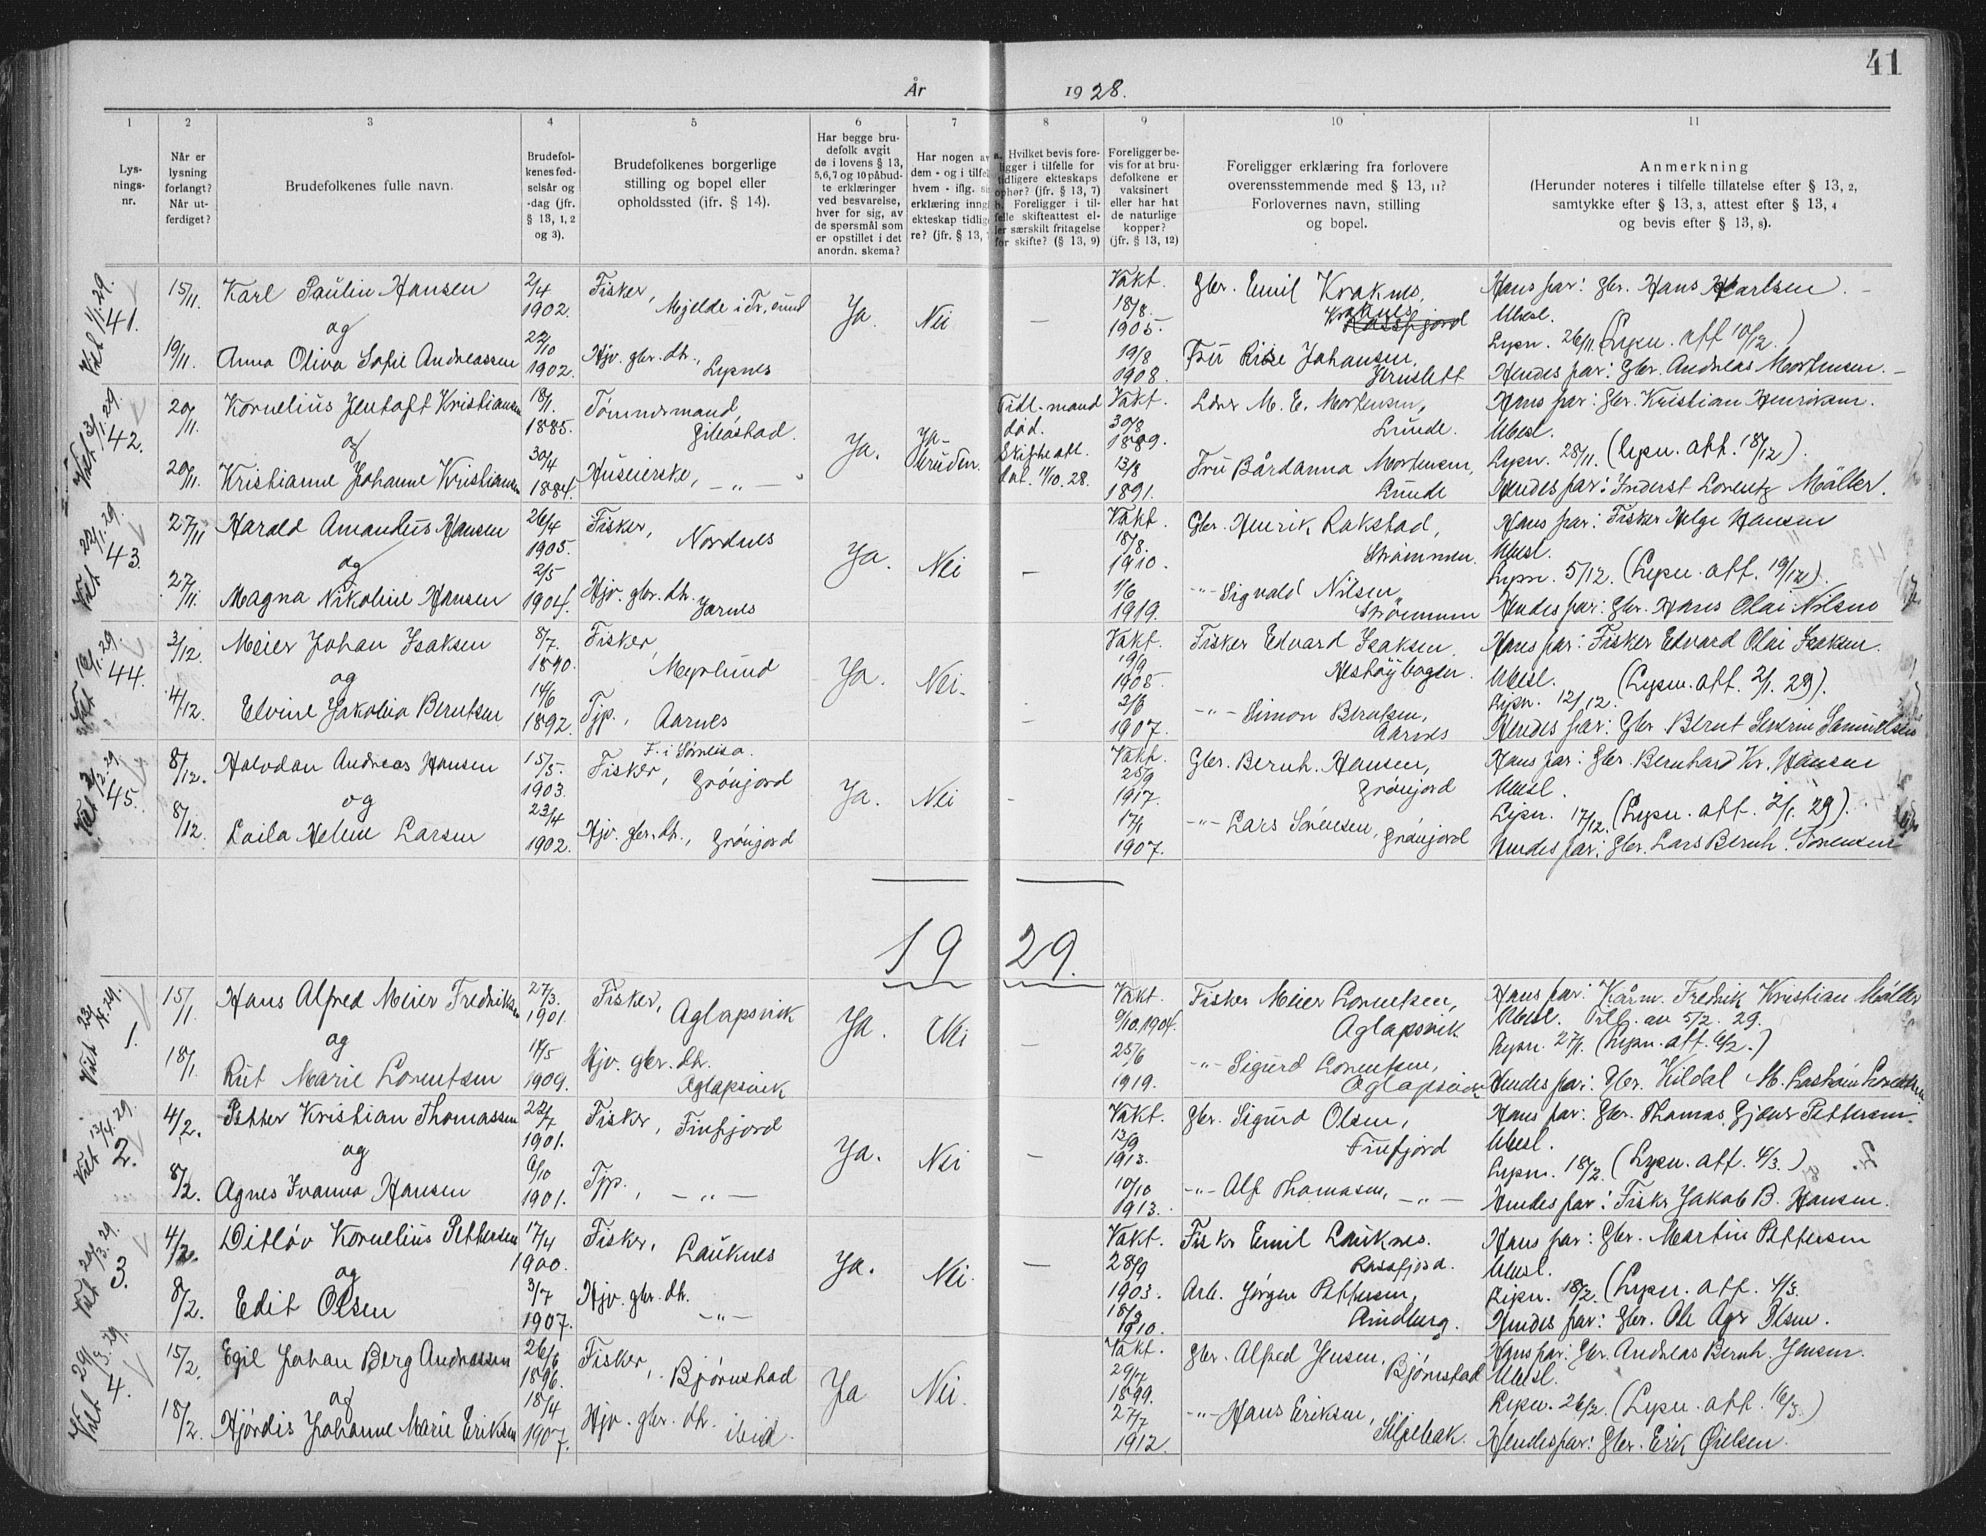 41
År 1928.
1 2 3 4 5 6 7 8 9 10 11
Lys-
nings-
nr.
Når er
lysning
forlangt?
Når ut-
ferdiget?
Brudefolkenes fulle navn.
Brudefol-
kenes fød-
selsår og
-dag (jfr.
§ 13, 1, 2
og 3).
Brudefolkenes borgerlige
stilling og bopel eller
opholdssted (jfr. § 14).
Har begge bru-
defolk avgit
de i lovens § 13,
5,6,7 og 10 påbud-
te erklæringer
ved besvarelse,
hver for sig, av
de spørsmål som
er opstillet i det
anordn. skema?
Har nogen av
dem - og i tilfel
hvem - iflg. si
erklæring inngå
ekteskap tidlige
re? (jfr. § 13,
a. Hvilket bevis fore-
ligger i tilfelle for
tidligere ekteskaps
ophør? (jfr. § 13, 7)
b. Foreligger i til-
felle skifteattest el-
ler særskilt fritagelse
for skifte? (§ 13, 9)
Foreligger be-
vis for at bru-
defolkene er
vaksinert
eller har hat
de naturlige
kopper?
(jfr. § 13, 12)
Foreligger erklæring fra forlovere
overensstemmende med § 13, 11?
Forlovernes navn, stilling
og bopel.
Anmerkning
(Herunder noteres i tilfelle tillatelse efter § 13, 2,
samtykke efter § 13, 3, attest efter § 13, 4
og bevis efter § 13, 8).
Viet 1/1.29.
41.
15/11.
Karl Paulin Hansen
2/4
1902.
Fisker,
Mjelde i Tr. sund
og
19/11.
Anna Oliva Sofie Andreassen
22/10
1902.
Hjv. gbr. dtr.,
Lysnes
Ja.
Nei
—
Vakt.
18/8.
1905.
19/8
1908.
Gbr. Emil Kraknes,
Kraknes
Fru Rise Johansen,
Hans far: Gbr. Hans Karlsen.
Ubesl.
Lysn. 26/11. (Lysn. att 10/12.)
Hendes far: Gbr. Andreas Mortensen.
Viet 3/1.29.
42.
20/11.
Kornelius Jentoft Kristiansen
18/1.
1885.
Tømmermand,
Gibostad.
og
20/11.
Kristianne Johanne Kristiansen
30/4
1884.
Huseierske, — „ —
Ja.
Ja-
bruden.
Tidl. mand
død.
Skifteatt.
dat. 11/10.28.
Vakt.
30/8
1899.
13/8
1891.
Lærer M. E. Mortensen,
Lunde.
Fru Bårdanna Mortensen,
Lunde
Hans far: Gbr. Kristian Henriksen.
Ubesl.
Lysn. 28/11. (Lysn. att. 18/12).
Hendes far: Inderst Lorentz Møller.
Viet 22/1.29.
43.
27/11
Harald Amandus Hansen
26/4
1905.
Fisker,
Nordnes
og
27/11.
Magna Nikoline Hansen
2/5
1904.
Hjv. gbr. dtr.
Ja.
Nei
—
Vakt.
18/8.
1910.
1/6
1919.
Gbr. Henrik Rakstad,
Strømmen.
-„- Sigvald Nilsen,
Strømmen
Hans far: Fisker Helge Hansen
Ubesl.
Lysn. 5/12. (Lysn. att. 19/12).
Hendes far: Gbr. Hans Olai Nilsen
44.
3/12.
Meier Johan Isaksen
8/7.
1890.
Fisker,
Myrlund
og
4/12.
Elvine Jakobia Berntsen
14/6
1892.
Tjp., Aarnes
Ja.
Nei.
—
Vakt.
19/9
1905.
2/6
1907.
Fisker Edvard Isaksen.
-„- Simon Berntsen,
Aarnes
Hans far: Fisker Edvard Olai Isaksen.
Ubesl.
Lysn. 12/12. (Lysn. att. 2/1. 29).
Hendes far: Gbr Bernt Severin Samuelsen
45.
8/12.
Halvdan Andreas Hansen
15/5.
1903.
Fisker, Grønjord
og
8/12.
Laila Helene Larsen
23/4
1902.
Hjv. gbr. dtr., Grønjord
Ja.
Nei
-
Vakt.
25/9
1917.
17/1
1907.
Gbr. Bernh. Hansen,
Grønjord
-„- Lars Sørensen, Grønjord
Hans far: Gbr. Bernhard Kr. Hansen
Ubesl.
Lysn. 17/12. (Lysn. att. 2/1. 29).
Hendes far: Gbr. Lars Bernh. Sørensen
1929.
Viet 23/4.29.
1.
15/1.
Hans Alfred Meier Fredriksen
27/3.
1901.
Fisker, Aglapsvik
og
18/1.
Rut Marie Lorentsen
1909.
Hjv. gbr. dtr.
Aglapsvik
Ja.
Nei
—
Vakt.
9/10.1904.
25/6
1919.
Fisker Meier Lorentsen,
Aglapsvik
-„- Sigurd Lorentsen,
Aglapsvik
Hans far: Kårm. Fredrik Kristian Møller
Ubesl. av 5/2. 29.
Lysn. 27/1. (Lysn. att. 6/2.)
Viet 13/4.29.
2.
4/2.
Petter Kristian Thomassen
22/7
1901.
Fisker, Finfjord
og
8/2.
Agnes Ivanna Hansen
6/10
1901.
Tjp., — „ —
Ja.
Nei
—
Vakt.
13/9
1913.
10/10
1913.
Gbr. Sigurd Olsen,
Finfjord
-„- Alf Thomassen, — „ —
Hans far: Gbr. Thomas Gjæver Pettersen.
Ubesl.
Lysn. 18/2. (Lysn. att. 4/3.)
Hendes far: Fisker Jakob B. Hansen.
Viet 20/3.29.
3.
4/2.
Ditløv Kornelius Pettersen
17/4
1900.
Fisker,
Lauknes
og
8/2.
Edit Olsen
3/7
1907.
Hjv. gbr. dtr.
-„-
Ja.
Nei.
—
Vakt.
28/9
1903.
18/3
1910.
Fisker Emil Lauknes.
Rossfjord.
Arb. Jørgen Pettersen,
Hans far: Gbr. Martin Pettersen
Ubesl.
Lysn. 18/2. (Lysn. att. 4/3.
Hendes far: Gbr. Ole Olsen.
Viet 29/3.29
4.
15/2.
Egil Johan Berg Andreassen
26/6
1896.
Fisker,
Bjørnstad
og
18/2.
Hjørdis Johanne Marie Eriksen
18/4
1907.
Hjv. gbr. dtr. ibid.
Ja
Nei.
—
Vakt.
29/7
1899.
27/7
1912.
Gbr. Alfred Jensen,
Bjørnstad
-„- Hans Eriksen,
Hans far: Gbr. Andreas Bernh. Jensen.
Ubesl.
Lysn. 26/2. (Lysn. att. 16/3.)
Hendes far: Gbr. Erik